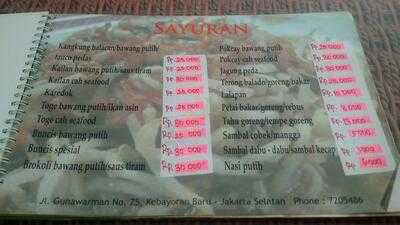 SAYURAN
Kangkung balacan/bawang putih/
tauco pedas Rp. 25.000
Kailan bawang putih/saus tiram Rp. 25.000
Kailan cah seafood Rp. 30.000
Karedok Rp. 25.000
Toge bawang putih/ikan asin Rp. 25.000
Toge cah seafood Rp. 30.000
Buncis bawang putih Rp. 25.000
Buncis spesial Rp. 30.000
Brokoli bawang putih/saus tiram Rp. 30.000
Pokcay bawang putih Rp. 25.000
Pokcay cah seafood Rp. 30.000
Jagung peda Rp. 30.000
Terong balado/goreng/bakar
Lalapan
Petai bakar/goreng/rebus
Tahu goreng/tempe goreng Rp. 15.000
Sambal cobek/mangga
Sambal dabu - dabu/sambal kecap
Nasi putih
Jl. Gunawarman No. 75, Kebayoran Baru - Jakarta Selatan Phone : 7205486